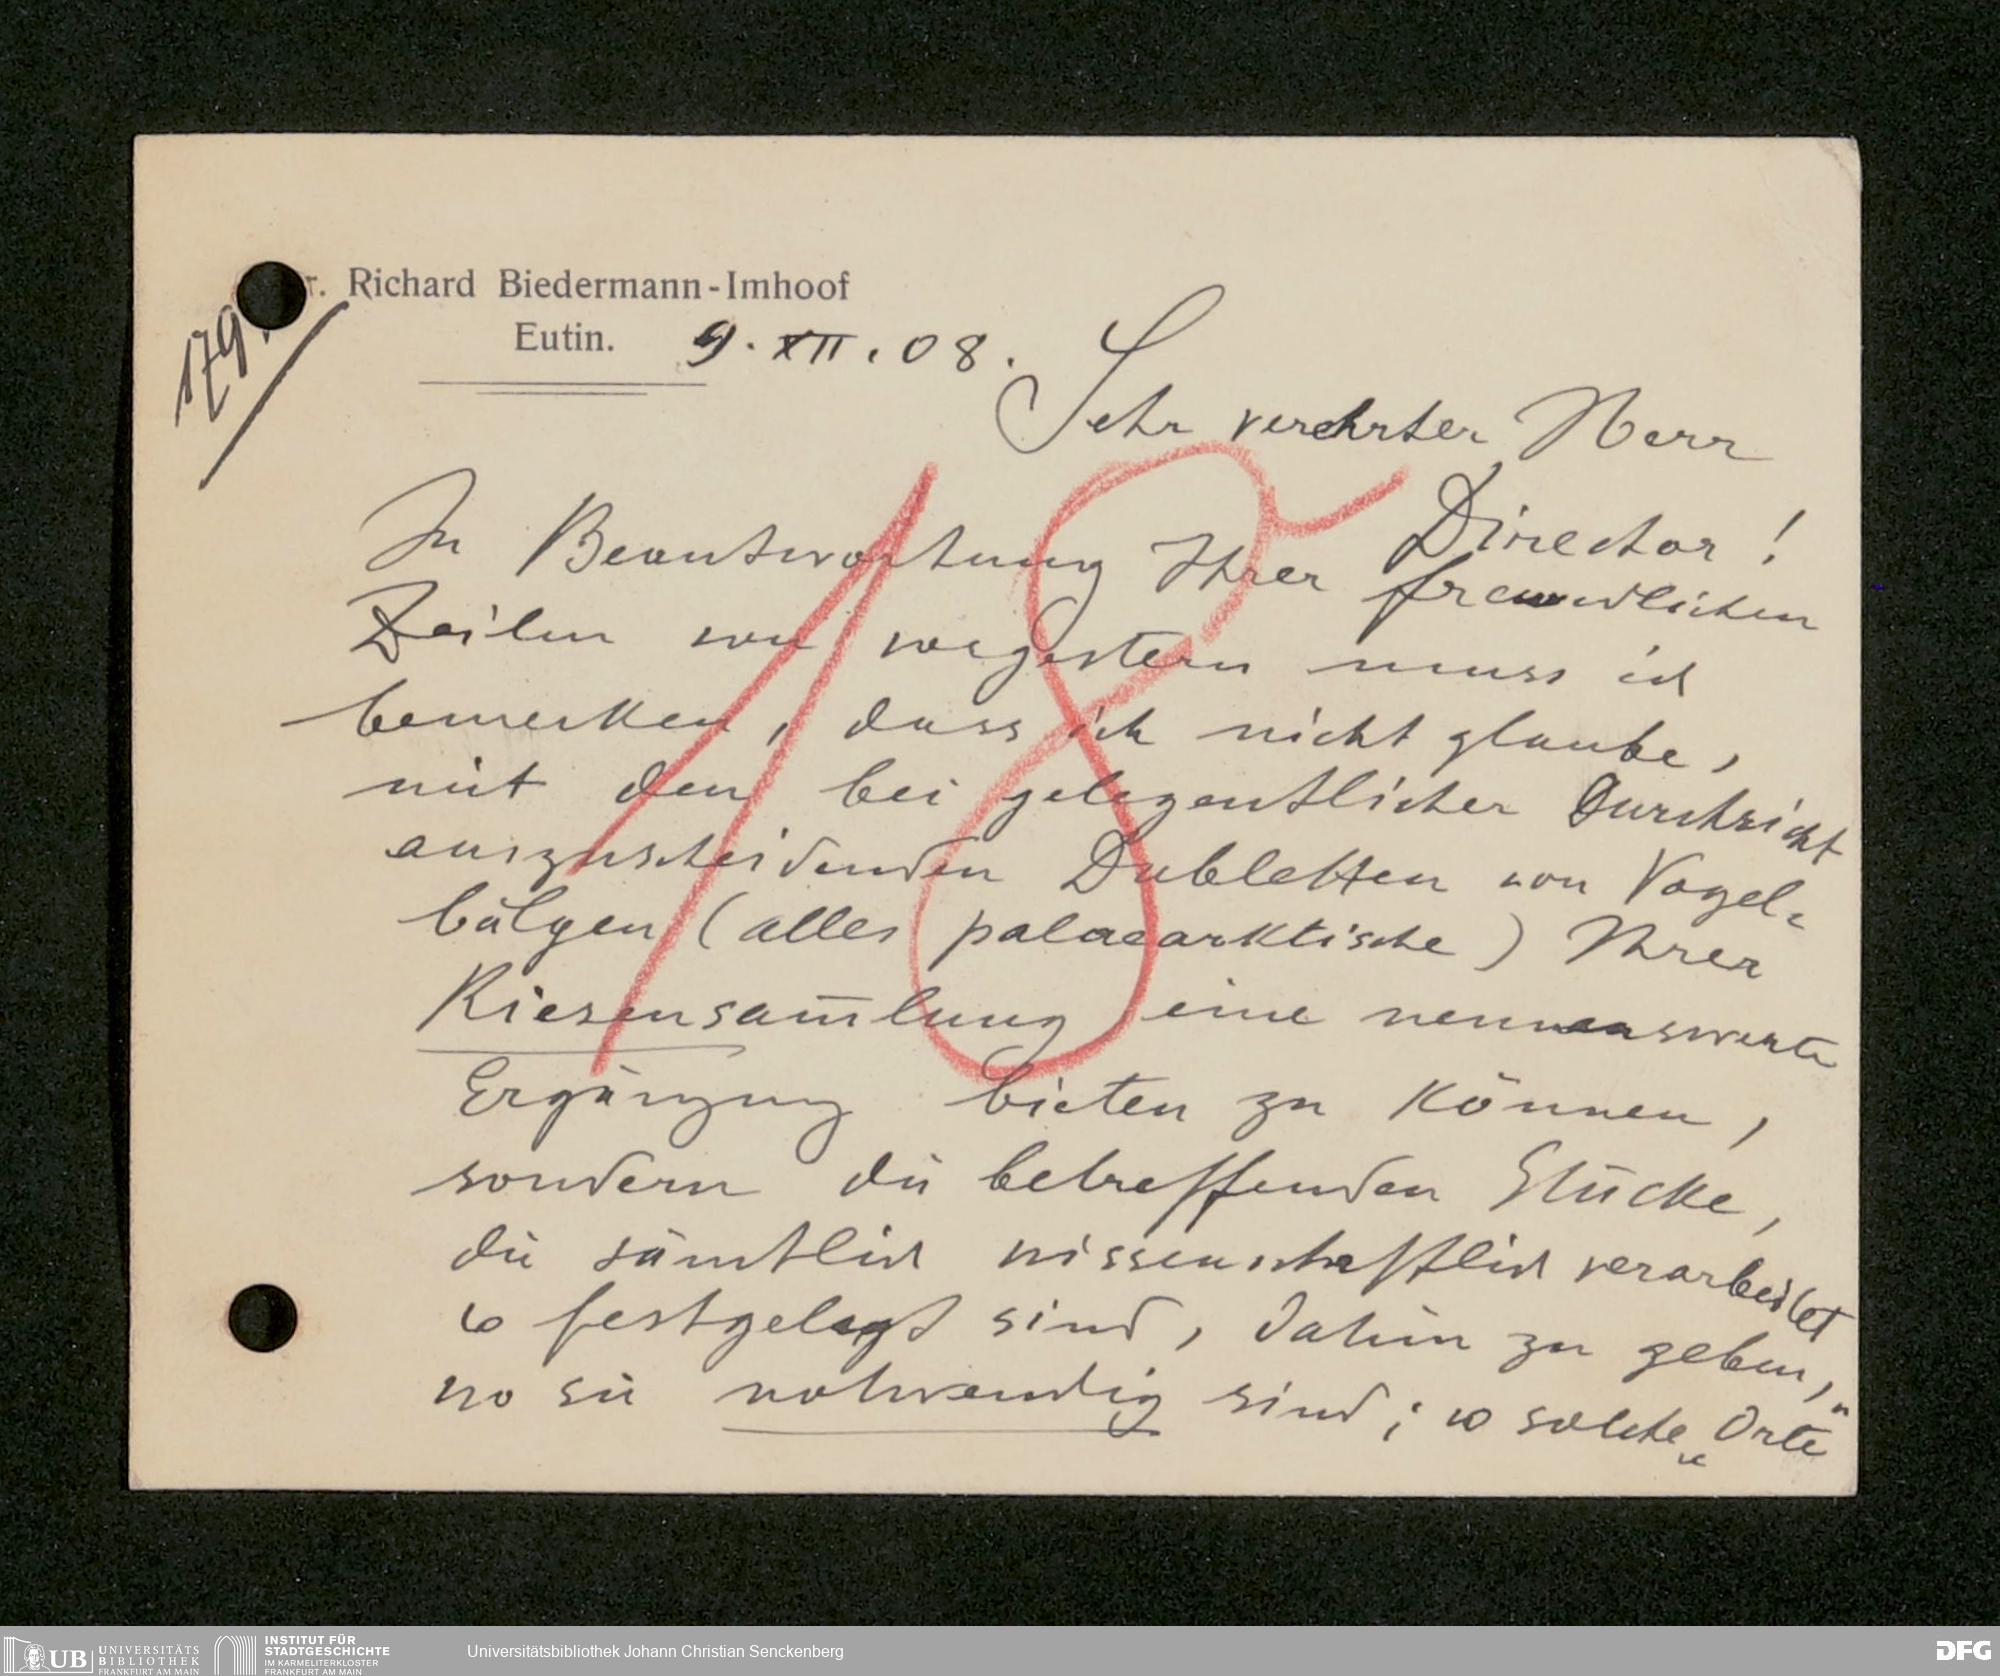 Dr. Richard Biedermann-Imhoof
Eutin. 9. XII. 08.
179
Sehr verehrter Herr
Director!
18
In Beantwortung Ihrer freundlichen
Zeilen von vorgestern muss ich
bemerken, dass ich nicht glaube,
mit den bei gelegentlicher Durchsicht
auszuscheidenden Dubletten von Vogel-
bälgen (alles palaearktische) Ihrer
Riesensam̅lung eine nennenswerte
Ergänzung bieten zu können,
sondern die betreffenden Stücke,
die sämtlich wissenschaftlich verarbeitet
u festgelegt sind, dahin zu geben,
wo sie notwendig sind; solche „Orte"
UB UNIVERSITÄTS
BIBLIOTHEK
FRANKFURT AM MAIN
INSTITUT FÜR
STADTGESCHICHTE
IM KARMELITERKLOSTER
FRANKFURT AM MAIN
Universitätsbibliothek Johann Christian Senckenberg
DFG